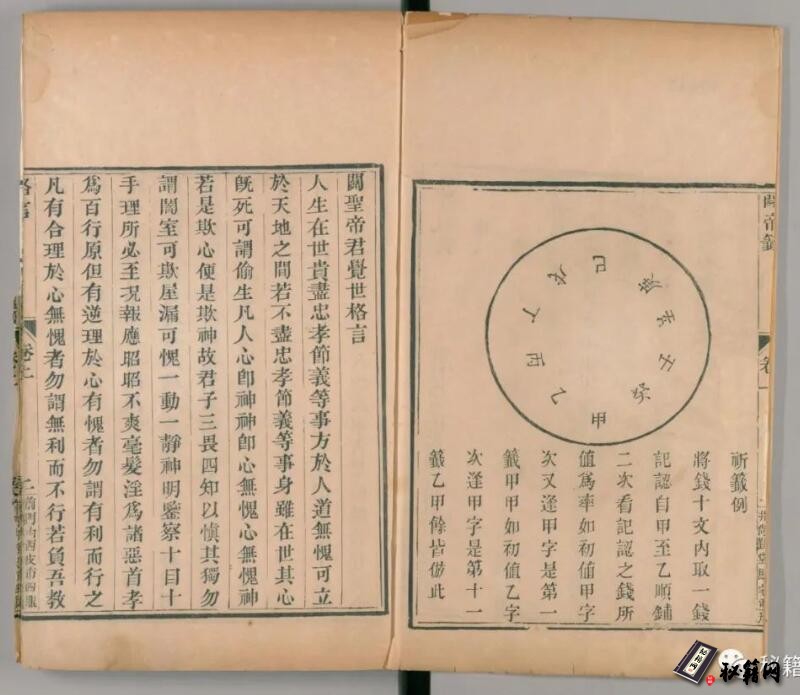 關帝籤
卷
甲
乙
丙
丁
戊
己
庚
辛
壬
癸
祈籤例
將錢十文內取一錢
記認自甲至乙順鋪
二次看記認之錢所
值爲率如初值甲字
次又逢甲字是第一
籤甲甲如初值乙字
次逢甲字是第十一
籤乙甲餘皆倣此
關聖帝君覺世格言
人生在世貴盡忠孝節義等事方於人道無愧可立
於天地之間若不盡忠孝節義等事身雖在世其心
旣死可謂偷生凡人心卽神神卽心無愧心無愧神
若是欺心便是欺神故君子三畏四知以愼其獨勿
謂闇室可欺屋漏可愧一動一靜神明鑒察十目十
手理所必至况報應昭昭不爽毫髮淫爲諸惡首孝
爲百行原但有逆理於心有愧者勿謂有利而行之
凡有合理於心無愧者勿謂無利而不行若負吾教
格言
卷上
二
秘籍网
秘籍